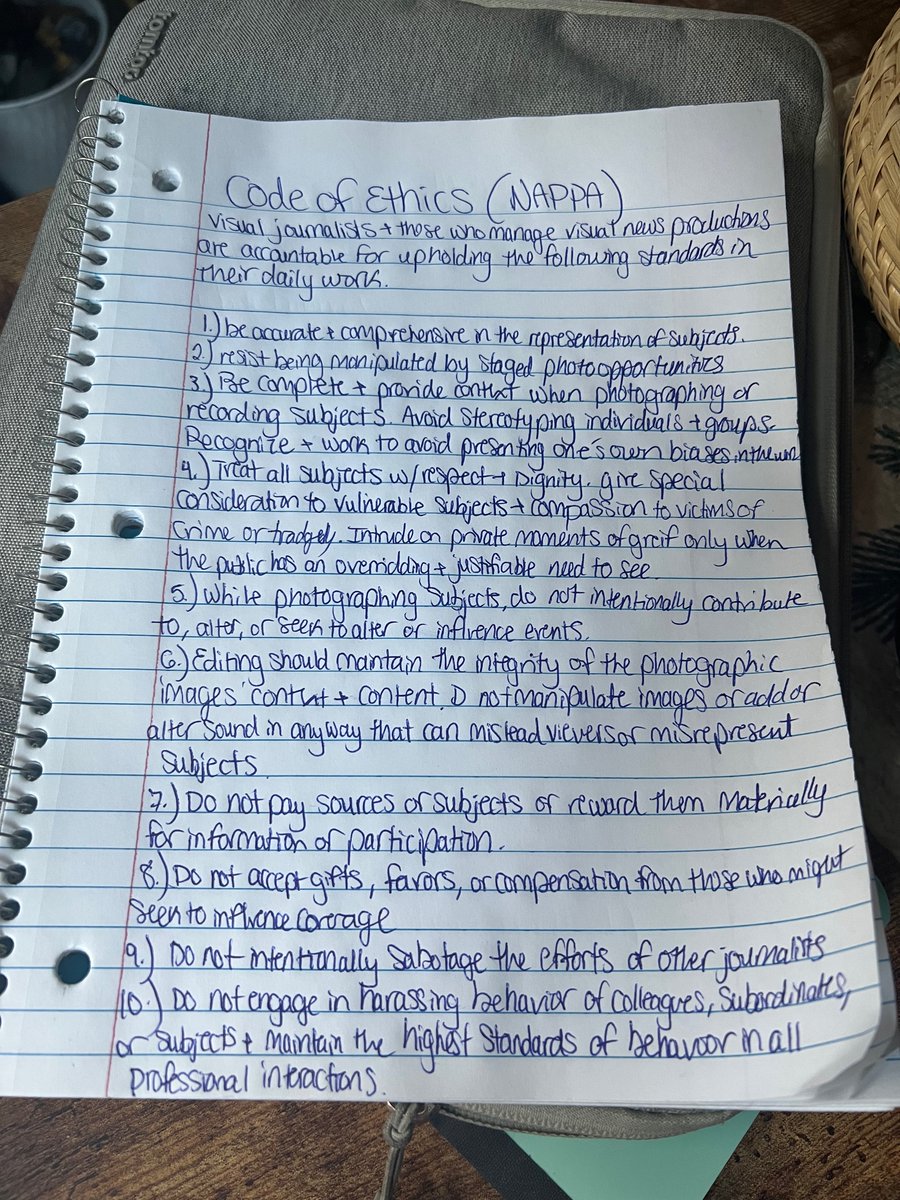 tomtoc
Code of Ethics (NAPPA)
visual journalists + those who manage visual news productions
are accountable for upholding the following standards in
their daily work.
1.) be accurate + comprehensive in the representation of subjects.
2.) resist being manipulated by staged photo opportunities
3.) Be complete + provide contxt when photographing or
recording subjects. Avoid sterotyping individuals + groups.
Recognize + work to avoid presenting one's own biases in the
4.) Treat all subjects w/respect + Dignity. give special
consideration to vulnerable subjects + compassion to victims of
crime or tradgely. Intrude on private moments of greif only when
the public has an overridding + justifiable need to see.
5.) While photographing subjects, do not intentionally contribute
to, alter, or seek to alter or influence events.
6.) Editing should maintain the integrity of the photographic
images' contxt + content. D not manipulate images or add or
alter sound in anyway that can mislead viewers or misrepresent
subjects.
7.) Do not pay sources or subjects or reward them materically
for information or participation.
8.) Do not accept gifts, favors, or compensation from those who might
seek to influence corrage
9.) Do not intentionally sabotage the efforts of other journalists
10.) Do not engage in harassing behavior of colleagues, subordinates,
or subjects + maintain the highest standards of behavoor in all
professional interactions.